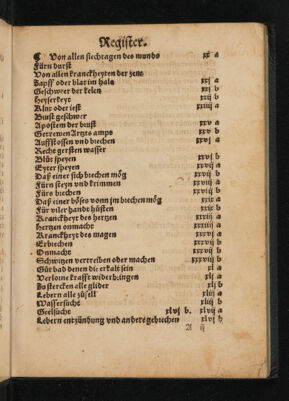 Register.
¶ Von allen siechtagen des munds xx a
Fürn durst
Von allen kranckheyten der zene
Zapff oder blat im hals xxj a
Geschwer der kelen xxj b
Heyserkeyt xxij b
xxiiij a
Brust geschwer
Apostem der brust xxv a
Getrewen Artzts ampt xxv b
Auffstossen vnd brechen xxvj a
Recht gersten wasser
Blůt speyen xxvj b
Eyter speyen
Daß einer sich brechen mög
Fürn steyn vnd krimmen
Fürs brechen
Daß einer böses vonn im brechen mög
Für viler hande hüsten
Kranckheyt des hertzen
Hertzen onmacht
Kranckheyt des magen
Erbrechen
Onmacht
Schwitzen vertreiben oder machen
Gůt bad denen die erkalt sein xl a
Verlorne krafft widerbringen xlj a
Zu stercken alle glider xlj b
Lebern alle züfell xlij b
Wassersucht xliij b
Geelsucht xlvj b. xlvij a
Lebern entzündung vnd anders gebrechen xlvj b
A ij